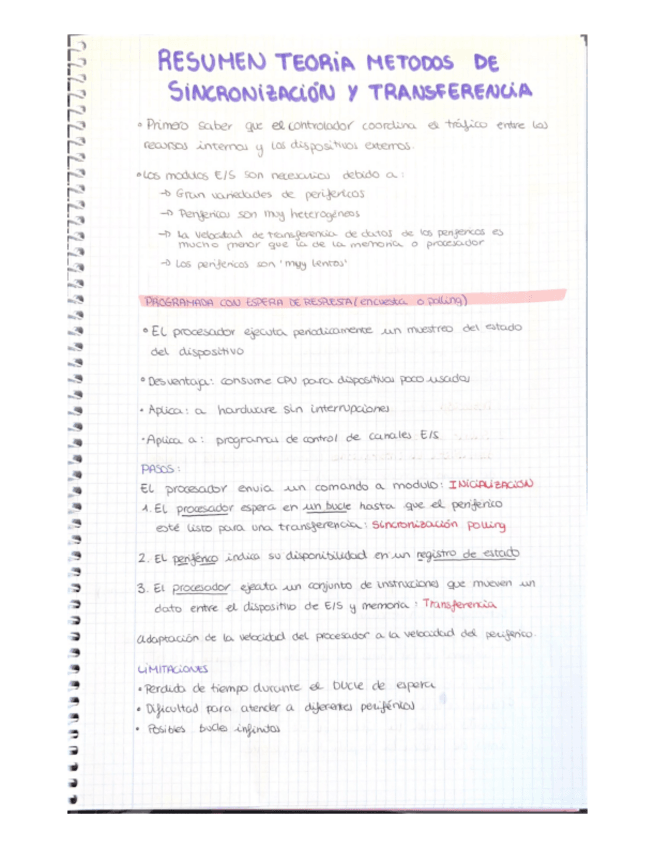 RESUMEN TEORIA METODOS DE
SINCRONIZACIÓN Y TRANSFERENCIA
• Primero saber que el controlador coordina el tráfico entre los
recursos internos y los dispositivos externos.
• Los modulos E/S son necesarios debido a:
→ Gran variedades de perifericos
→ Perifericos son muy heterogéneos
→ La velocidad de transferencia de datos de los perifericos es
mucho menor que la de la memoria o procesador
→ Los perifericos son 'muy lentos'
PROGRAMADA CON ESPERA DE RESPUESTA (encuesta o polling)
• EL procesador ejecuta periodicamente un muestreo del estado
del dispositivo
• Desventaja: consume CPU para dispositivos poco usados
• Aplica: a hardware sin interrupciones
• Aplica a: programas de control de canales E/S
PASOS:
EL procesador envia un comando a modulo: INICIALIZACIÓN
1. EL procesador espera en un bucle hasta que el periferico
esté listo para una transferencia: Sincronización polling
2. EL periférico indica su disponibilidad en un registro de estado
3. El procesador ejecuta un conjunto de instrucciones que mueven un
dato entre el dispositivo de E/S y memoria: Transferencia
Adaptación de la velocidad del procesador a la velocidad del periferico.
LIMITACIONES
• Perdida de tiempo durante el bucle de espera
• Dificultad para atender a diferentes periféricos
• Posibles bucles infinitos